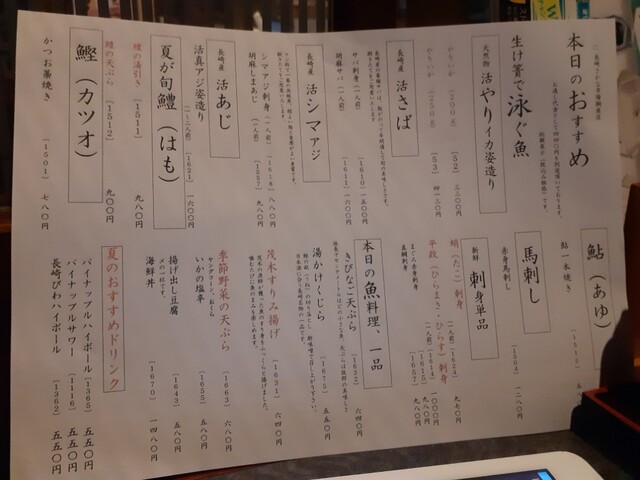 本日のおすすめ
生け簀で泳ぐ魚
天然物 活やりイカ姿造り
(52) 三三〇〇円
(53) 四一三〇円
長崎産 活さば
サバ刺身(一人前) (1610) 一五〇〇円
胡麻サバ(一人前) (1611) 一六〇〇円
長崎産 活シマアジ
シマアジ刺身(一人前) (1614) 八八〇円
胡麻しまあじ(一人前) (1557) 九八〇円
長崎産 活あじ
活真アジ姿造り(一~二人前) (1621) 一六〇〇円
夏が旬鱧(はも)
鱧の湯引き (1511) 九八〇円
鱧の天ぷら (1512) 九〇〇円
鰹(カツオ)
かつお藁焼き (1501) 七八〇円
鮎(あゆ)
鮎一本焼き (1513)
馬刺し
赤身馬刺し (1504) 一二八〇円
新鮮 刺身単品
蛸(たこ)刺身 (一人前) (1623) 九七〇円
平政(ひらまさ・ひらす)刺身 (一人前) (1614) 一〇〇〇円
まぐろ赤身刺身 (1625) 九八〇円
真鯛刺身 (1657) 九八〇円
本日の魚料理、一品
きびなご天ぷら (1632) 六四〇円
湯かけくじら (1675) 五五〇円
茂木すりみ揚げ (1631) 六四〇円
季節野菜の天ぷら (1663) 六八〇円
ヤングコーン、おくら
いかの塩辛 (1655) 五八〇円
揚げ出し豆腐 (1643) 五八〇円
〆の一杯です。
海鮮丼 (1670) 一四八〇円
夏のおすすめドリンク
パイナップルハイボール (1365) 五五〇円
パイナップルサワー (1116) 五五〇円
長崎びわハイボール (1362) 五五〇円